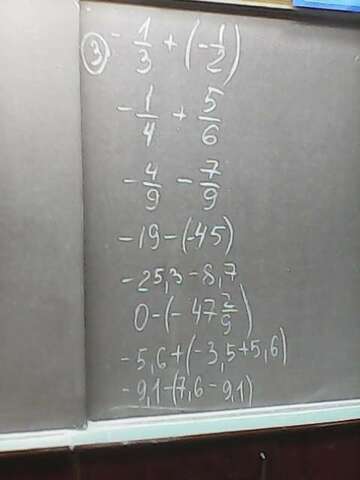 ③ -1/3 + (-1/2)
-1/4 + 5/6
-4/9 - 7/9
-19-(-45)
-25,3-8,7
0-(-47 2/9)
-5,6+(-3,5+5,6)
-9,1-(7,6-9,1)